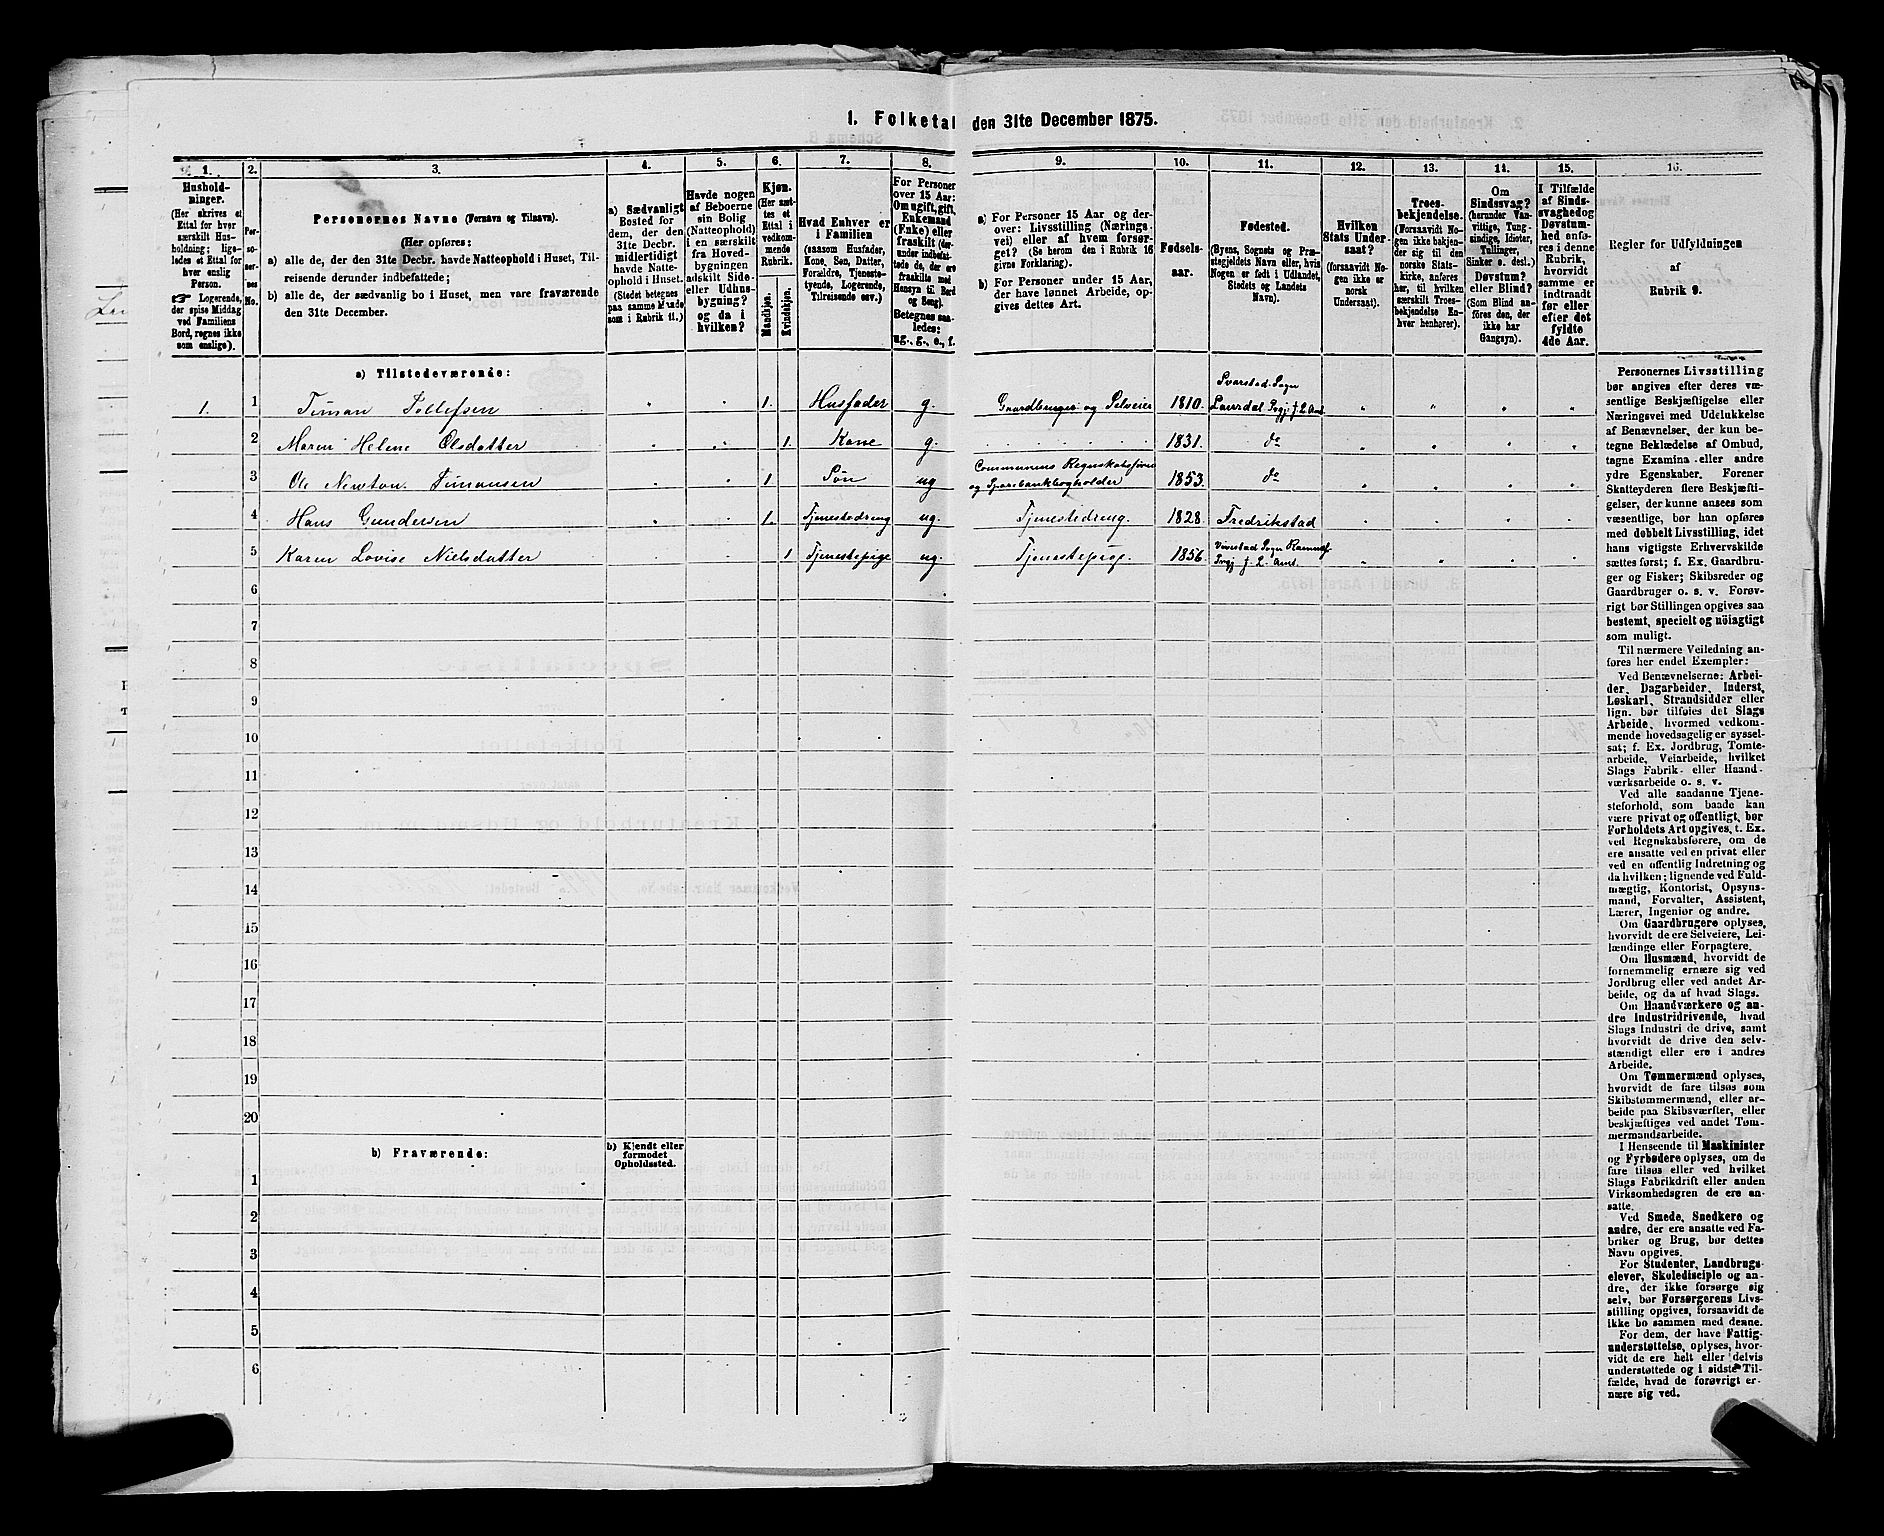 1. Folketal den 31te December 1875.
1. 2. 3. 4. 5. 6. 7. 8. 9. 10. 11. 12. 13. 14. 15. 16.
Hushold-
ninger.
(Her skrives et
Ettal for hver
særskilt Hus-
holdning; lige-
ledes et Ettal for
hver enslig
Person.
☞ Logerende,
der spise Middag
ved Familiens
Bord, regnes ikke
som enslige).
Per-
so-
ner-
nes
No.
Personernes Navne (Fornavn og Tilnavn).
(Her opføres:
a) alle de, der den 31te Decbr. havde Natteophold i Huset, Til-
reisende derunder indbefattede;
b) alle de, der sædvanlig bo i Huset, men vare fraværende
den 31te December.
a) Sædvanligt
Bosted for
dem, der den
31te Decbr.
midlertidigt
havde Natte-
ophold i Huset.
(Stedet betegnes
paa samme Maade,
som i Rubrik 11.)
Havde nogen
af Beboerne
sin Bolig
(Natteophold)
i en særskilt
fra Hoved-
bygningen
adskilt Side-
eller Udhus-
bygning?
og da i
hvilken?
Kjøn.
(Her sæt-
tes et
Ettal i
vedkom-
mende
Rubrik.
Mandkjøn.
Kvindekjøn.
Hvad Enhver er
i Familien
(saasom Husfader,
Kone, Søn, Datter,
Forældre, Tjeneste-
tyende, Logerende,
Tilreisende osv.)
For Personer
over 15 Aar:
Om ugift, gift,
Enkemand
(Enke) eller
fraskilt (der-
under indbefat-
tede de, der ere
fraskilte med
Hensyn til Bord
og Seng).
Betegnes saa-
ledes:
ug., g., e., f.
a) For Personer 15 Aar og der-
over: Livsstilling (Nærings-
vei) eller af hvem forsør-
get? (Se herom den i Rubrik 16
givne Forklaring).
b) For Personer under 15 Aar,
der have lønnet Arbeide, op-
gives dettes Art.
Fødsels-
aar.
Fødested.
(Byens, Sognets og Præ-
stegjeldets Navn eller, hvis
Nogen er født i Udlandet,
Stedets og Landets
Navn).
Hvilken
Stats Under-
saat?
(forsaavidt No-
gen ikke er
norsk
Undersaat).
Troes-
bekjendelse.
(Forsaavidt No-
gen ikke bekjen-
der sig til den
norske Stats-
kirke, anføres
her, til hvilken
særskilt Troes-
bekjendelse En-
hver henhører).
Om
Sindssvag?
(herunder Van-
vittige, Tung-
sindige, Idioter,
Tullinger,
Sinker o. desl.)
Døvstum?
eller Blind?
(Som Blind an-
føres den, der
ikke har
Gangsyn).
I Tilfælde
af Sinds-
svaghed og
Døvstum-
hed anfø-
res i denne
Rubrik,
hvorvidt
samme er
indtraadt
før eller
efter det
fyldte
4de Aar.
Regler for Udfyldningen
af
Rubrik 9.
a) Tilstedeværende:
1. 1 Timan Tollefsen 1. Husfader g. Gaardbruger og Selveier 1810. Svarstad Sogn Laurdal Prgj. J. L. Amt.
2 Maren Helene Olsdatter 1. Kone g. 1831. do
3 Ole Newton Timansen 1. Søn ug Communens Regnskabsfører og Sparebankbogholder 1853. do
4 Hans Gundersen 1. Tjenestedreng ug. Tjenestedreng. 1828. Fredrikstad
5 Karen Lovise Nielsdatter 1 Tjenestepige ug. Tjenestepige. 1856. Vivestad Sogn Ramnæs Prgj J. L. Amt.
6
7
8
9
10
11
12
13
14
15
16
17
18
19
20
b) Fraværende:
b) Kjendt eller
formodet
Opholdssted.
1
2
3
4
5
6
Personernes Livsstilling
bør angives efter deres væ-
sentlige Beskjæftigelse eller
Næringsvei med Udelukkelse
af Benævnelser, der kun be-
tegne Beklædelse af Ombud,
tagne Examina eller andre
ydre Egenskaber. Forener
Skatteyderen flere Beskjæfti-
gelser, der kunne ansees som
væsentlige, bør han opføres
med dobbelt Livsstilling, idet
hans vigtigste Erhvervskilde
sættes først; f. Ex. Gaardbru-
ger og Fisker; Skibsreder og
Gaardbruger o. s. v. Forøv-
rigt bør Stillingen opgives saa
bestemt, specielt og nöiagtigt
som muligt.
Til nærmere Veiledning an-
føres her endel Exempler:
Ved Benævnelserne: Arbei-
der, Dagarbeider, Inderst,
Løskarl, Strandsidder eller
lign. bør tilføies det Slags
Arbeide, hvormed vedkom-
mende hovedsagelig er syssel-
sat; f. Ex. Jordbrug, Tomte-
arbeide, Veiarbeide, hvilket
Slags Fabrik- eller Haand-
værksarbeide o. s. v.
Ved alle saadanne Tjene-
steforhold, som baade kan
være privat og offentligt, bør
Forholdets Art opgives, t. Ex.
ved Regnskabsførere, om de
ere ansatte ved en privat eller
ved en offentlig Indretning og
da hvilken; lignende ved Fuld-
mægtig, Kontorist, Opsyns-
mand, Forvalter, Assistent,
Lærer, Ingeniør og andre.
Om Gaardbrugere oplyses,
hvorvidt de ere Selveiere, Lei-
lændinge eller Forpagtere.
Om Husmænd, hvorvidt de
fornemmelig ernære sig ved
Jordbrug eller ved andet Ar-
beide, og da af hvad Slags.
Om Haandværkere og an-
dre Industridrivende, hvad
Slags Industri de drive, samt
hvorvidt de drive den selv-
stændigt eller ere i andres
Arbeide.
Om Tømmermænd oplyses,
hvorvidt de fare tilsøs som
Skibstømmermænd, eller ar-
beide paa Skibsværfter, eller
beskjæftiges ved andet Tøm-
mermandsarbeide.
I Henseende til Maskinister
og Fyrbødere oplyses, om de
fare tilsøs eller ved hvilket
Slags Fabrikdrift eller anden
Virksomhedsgren de ere an-
satte.
Ved Smede, Snedkere og
andre, der ere ansatte ved Fa-
briker og Brug, bør dettes
Navn opgives.
For Studenter, Landbrugs-
elever, Skoledisciple og an-
dre, der ikke forsørge sig
selv, bør Forsørgerens Livs-
stilling opgives, forsaavidt de
ikke bo sammen med denne.
For dem, der have Fattig-
understøttelse, oplyses, hvor-
vidt de ere helt eller delvis
understøttede og i sidste Til-
fælde, hvad de forøvrigt er-
nære sig ved.